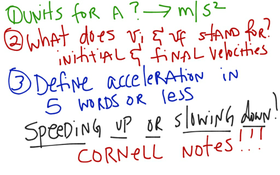 ① UNITS FOR A? → m/s²
② WHAT DOES Vi & Vf STAND FOR?
INITITIAL & FINAL VELOCITIES
③ DEFINE ACCELERATION IN
5 WORDS OR LESS
SPEEDING UP OR SLOWING DOWN!
CORNELL NOTES!!!